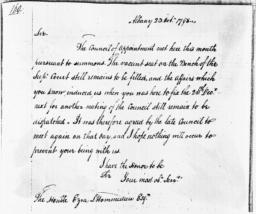 Albany 23 Oct. 1792
Sir
The Council of Appointment met here this month
pursuant to summons. The vacant seat on the Bench of the
Sup. Court still remains to be filled, and the affairs which
you know induced us when you was here to fix the 20th Nov.
next for another meeting of the Council still remain to be
dispatched. It was therefore agreed by the late Council to
meet again on that day, and I hope nothing will occur to
prevent your being with us.
I have the honor to be
Sir
Your most ob. Serv.
The Honble Ezra L'Hommedieu Esq.